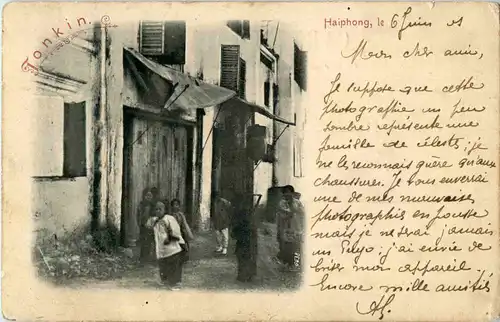 Tonkin.
Haiphong, le 6 Juin 01
Mon cher ami,
Je suppose que cette
photographie un peu
sombre représente une
famille de célests; je
ne les reconnais guère qu'aux
chaussures. Je vous enverrai
une de mes mauvaises
photographies en pousse
mais je ne serai jamais
un Eugo. j'ai envie de
briser mon appareil.
Encore mille amitiés